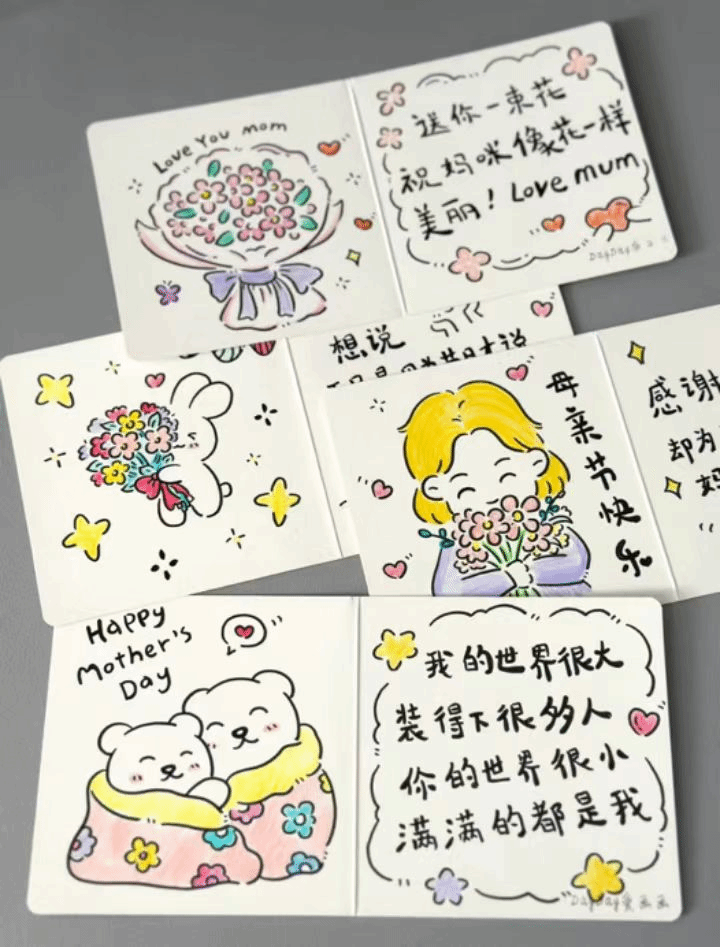 Love You mom
送你一束花
祝妈咪像花一样
美丽！Love mum
想说
母亲节快乐
感谢
却为
Happy
Mother's
Day
我的世界很大
装得下很多人
你的世界很小
满满的都是我
DayDay爱画画